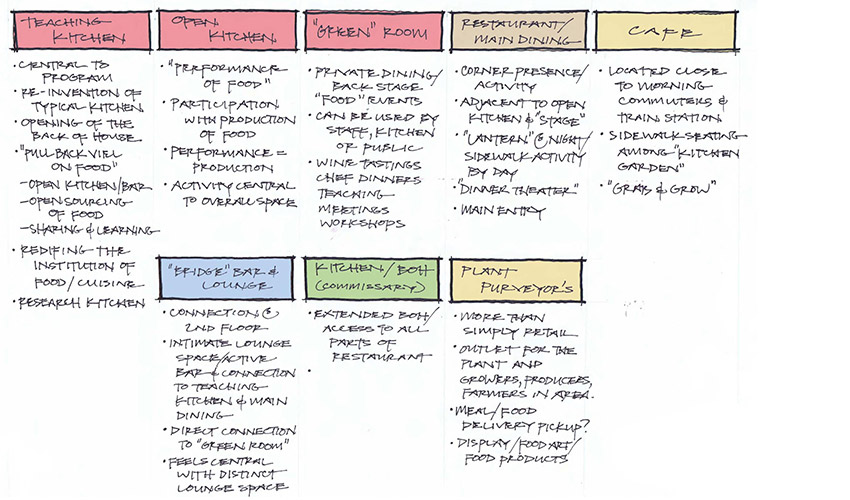 TEACHING
KITCHEN
• CENTRAL TO
PROGRAM
• RE-INVENTION OF
TYPICAL KITCHEN
• OPENING OF THE
BACK OF HOUSE
• "PULL BACK VIEL
ON FOOD"
-OPEN KITCHEN/BAR
-OPEN SOURCING
OF FOOD
-SHARING & LEARNING
• REDIFING THE
INSTITUTION OF
FOOD/CUISINE
• RESEARCH KITCHEN
OPEN
KITCHEN
• "PERFORMANCE
OF FOOD"
• PARTICIPATION
WITH PRODUCTION
OF FOOD
• PERFORMANCE =
PRODUCTION
• ACTIVITY CENTRAL
TO OVERALL SPACE
"GREEN" ROOM
• PRIVATE DINING/
BACK STAGE
"FOOD" EVENTS
• CAN BE USED BY
STAFF, KITCHEN
OR PUBLIC
• WINE TASTINGS
CHEF DINNERS
TEACHING
MEETINGS
WORKSHOPS
RESTAURANT/
MAIN DINING
• CORNER PRESENCE/
ACTIVITY
• ADJACENT TO OPEN
KITCHEN & "STAGE"
• "LANTERN" @ NIGHT/
SIDEWALK ACTIVITY
BY DAY
• "DINNER THEATER"
• MAIN ENTRY
CAFE
• LOCATED CLOSE
TO MORNING
COMMUTERS &
TRAIN STATION
• SIDEWALK SEATING
AMONG "KITCHEN
GARDEN"
• "GRAB & GROW"
"BRIDGE" BAR &
LOUNGE
• CONNECTION @
2ND FLOOR
• INTIMATE LOUNGE
SPACE/ACTIVE
BAR & CONNECTION
TO TEACHING
KITCHEN & MAIN
DINING
• DIRECT CONNECTION
TO "GREEN ROOM"
• FEELS CENTRAL
WITH DISTINCT
LOUNGE SPACE
KITCHEN/BOH
(COMMISSARY)
• EXTENDED BOH/
ACCESS TO ALL
PARTS OF
RESTAURANT
•
PLANT
PURVEYOR'S
• MORE THAN
SIMPLY RETAIL
• OUTLET FOR THE
PLANT AND
GROWERS, PRODUCERS,
FARMERS IN AREA.
• MEAL/FOOD
DELIVERY PICKUP?
• DISPLAY/FOOD ART/
FOOD PRODUCTS/